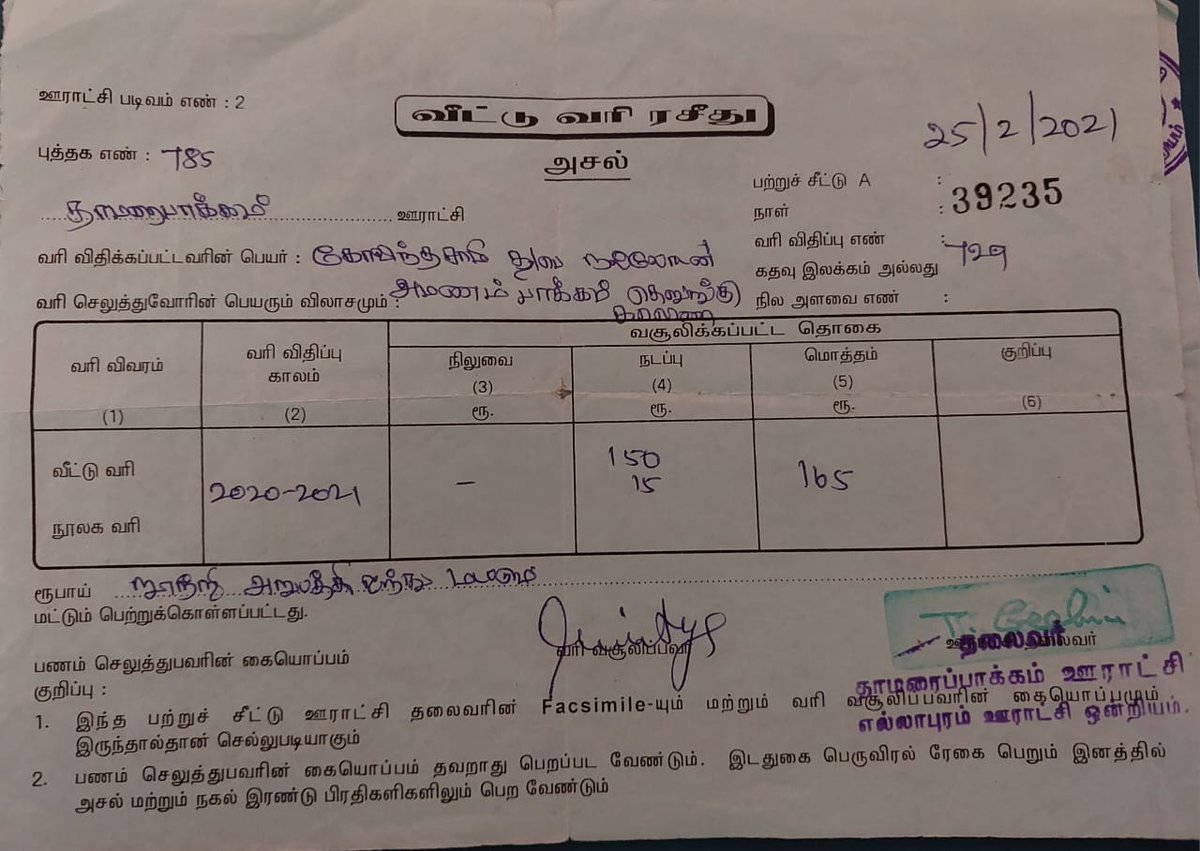 ஊராட்சி படிவம் எண் : 2
வீட்டு வரி ரசீது
25/2/2021
புத்தக எண் : 785
அசல்
பற்றுச் சீட்டு A :
நாள் : 39235
தாமரைபாக்கம் ஊராட்சி
வரி விதிப்பு எண் :
வரி விதிக்கப்பட்டவரின் பெயர் : கோவிந்தசாமி
கதவு இலக்கம் அல்லது 729
வரி செலுத்துவோரின் பெயரும் விலாசமும் : அமணம்பாக்கம்
நில அளவை எண் :
வரி விவரம்
(1)
வரி விதிப்பு காலம்
(2)
வசூலிக்கப்பட்ட தொகை
நிலுவை
(3)
ரூ.
நடப்பு
(4)
ரூ.
மொத்தம்
(5)
ரூ.
குறிப்பு
(6)
வீட்டு வரி
நூலக வரி
2020-2021
–
150
15
165
ரூபாய் நூற்றி அறுபத்தி ஐந்து மட்டும்
மட்டும் பெற்றுக்கொள்ளப்பட்டது.
வரி வசூலிப்பவர்
ஊராட்சி தலைவர்
தலைவர்
தாமரைப்பாக்கம் ஊராட்சி
எல்லாபுரம் ஊராட்சி ஒன்றியம்.
பணம் செலுத்துபவரின் கையொப்பம்
குறிப்பு :
1. இந்த பற்றுச் சீட்டு ஊராட்சி தலைவரின் Facsimile-யும் மற்றும் வரி வசூலிப்பவரின் கையொப்பமும்
இருந்தால்தான் செல்லுபடியாகும்
2. பணம் செலுத்துபவரின் கையொப்பம் தவறாது பெறப்பட வேண்டும். இடதுகை பெருவிரல் ரேகை பெறும் இனத்தில்
அசல் மற்றும் நகல் இரண்டு பிரதிகளிகளிலும் பெற வேண்டும்